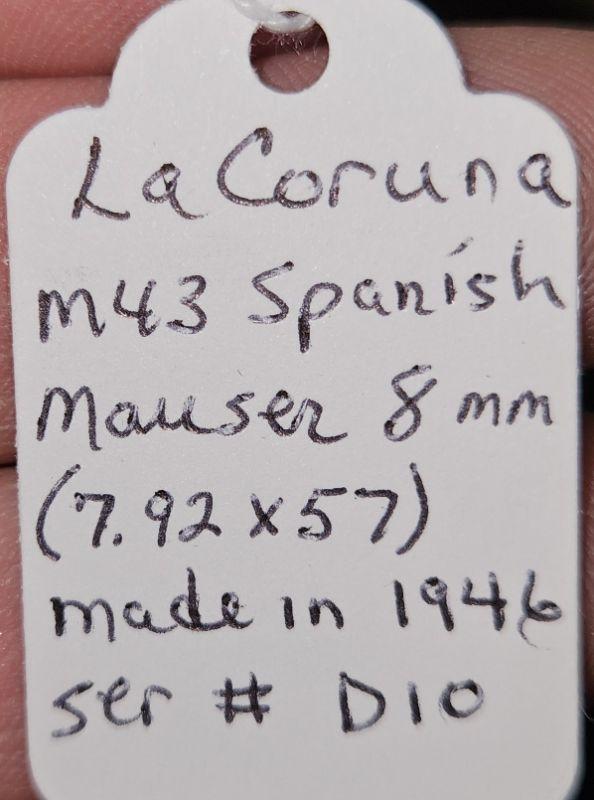 La Coruna
M43 Spanish
Mauser 8mm
(7.92x57)
made in 1946
ser # D10